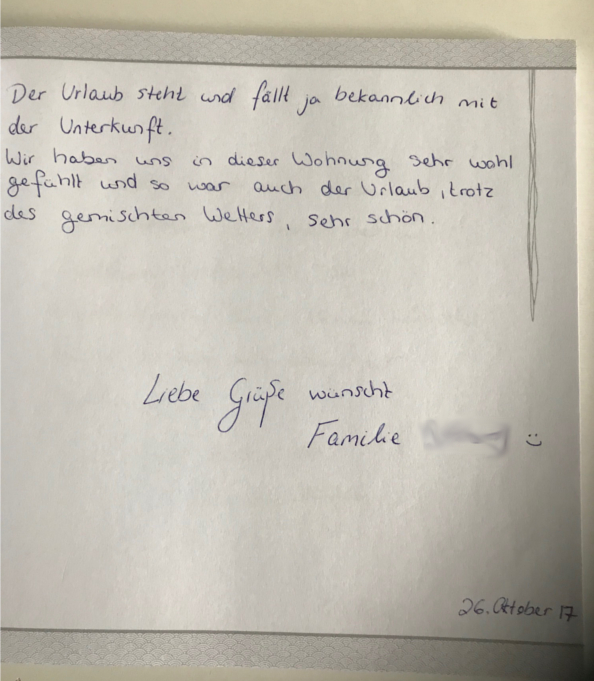 Der Urlaub steht und fällt ja bekanntlich mit
der Unterkunft.
Wir haben uns in dieser Wohnung sehr wohl
gefühlt und so war auch der Urlaub, trotz
des gemischten Wetters, sehr schön.
Liebe Grüße wünscht
Familie :)
26. Oktober 17